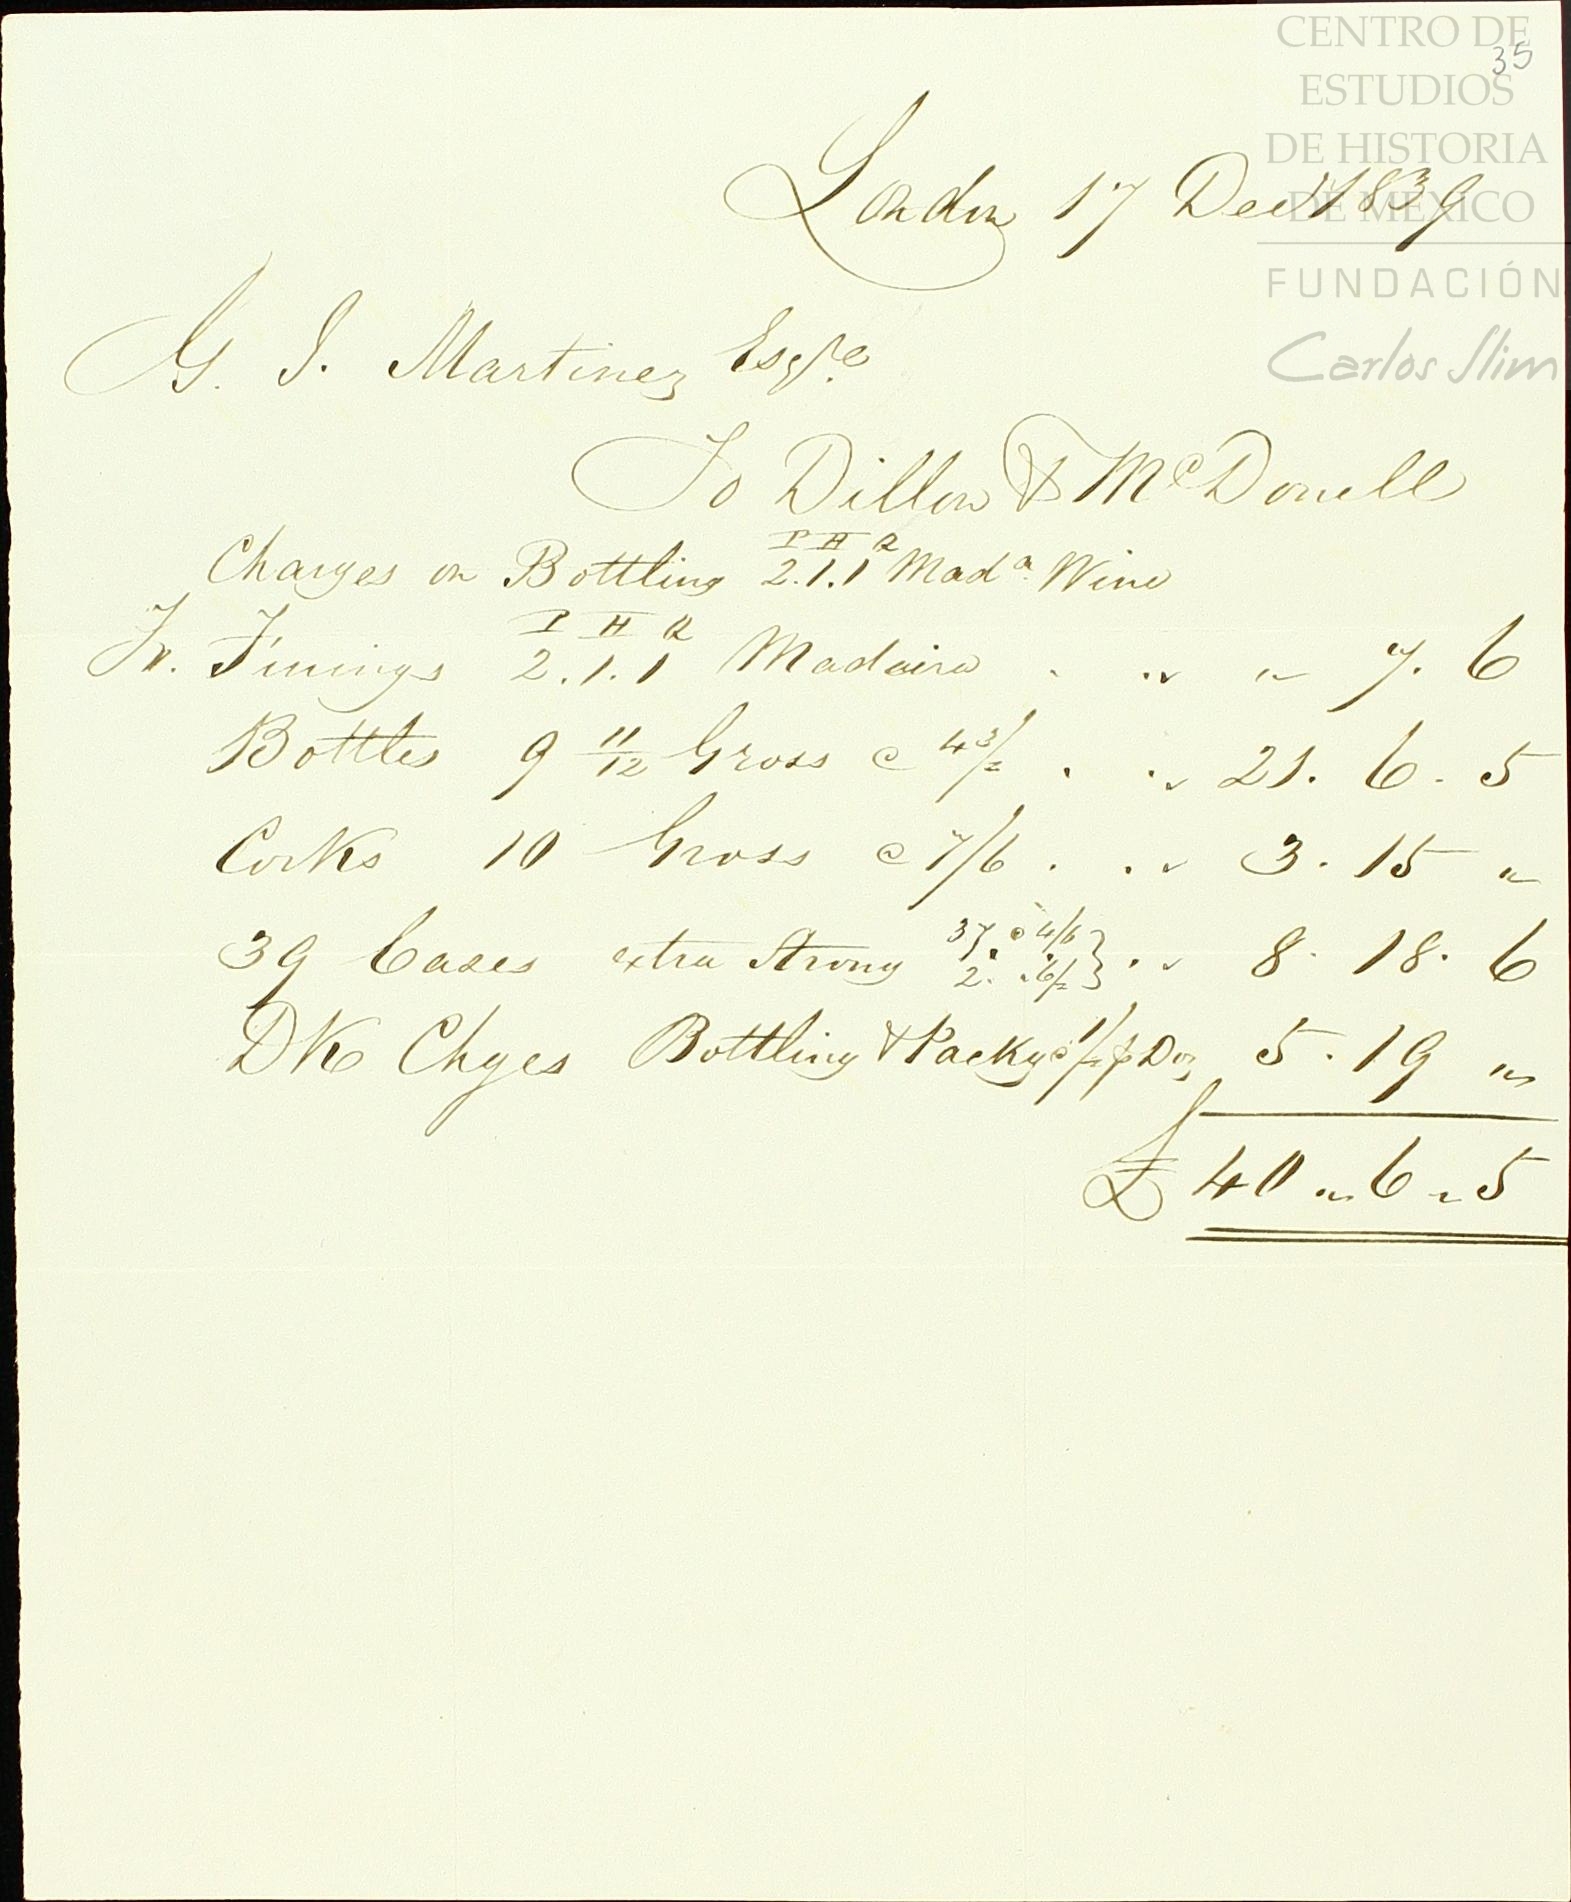 CENTRO DE
35
ESTUDIOS
DE HISTORIA
DE MÉXICO
FUNDACIÓN
Carlos Slim
London 17 Decr 1839
G. J. Martinez Esqre.
To Dillon & McDonell
P H Q
Charges on Bottling 2.1.1 Mada. Wine
P H Q
Fr. Finings 2.1.1 Madaira . .. " 7. 6
Bottles 9 11/12 Gross @ 43/= . .. 21. 6. 5
Corks 10 Gross @ 7/6 . .. 3. 15 "
39 Cases extra Strong 37. @ 4/6 } .. 8. 18. 6
2. . 6/= }
DK Chges Bottling & Packg @ 1/= p Doz 5. 19 "
£ 40 " 6 " 5